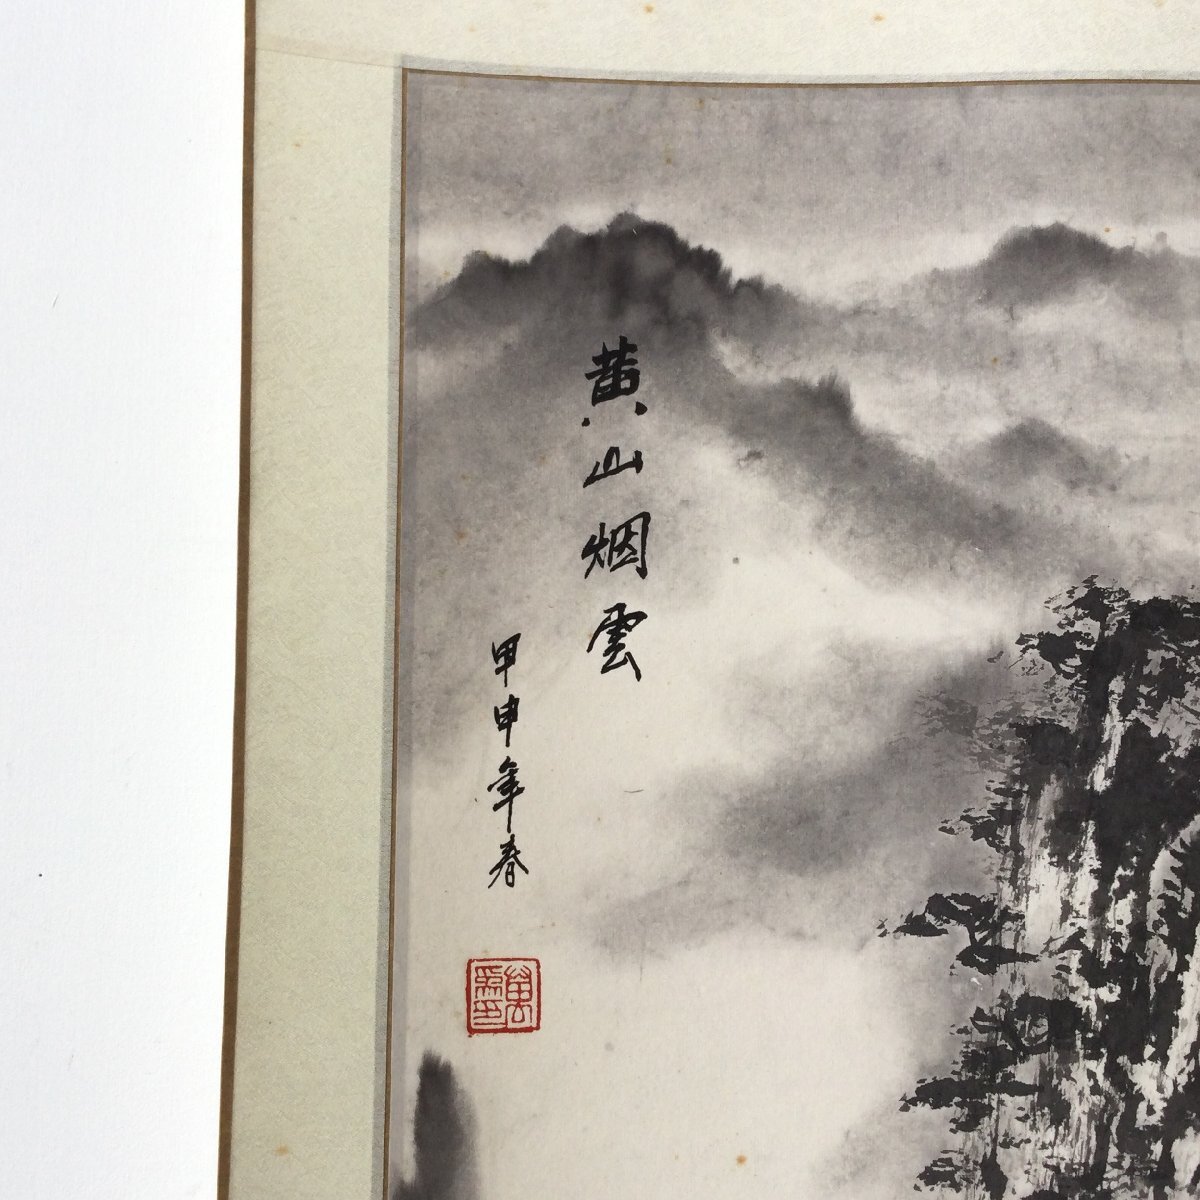 黄山烟雲
甲申年春